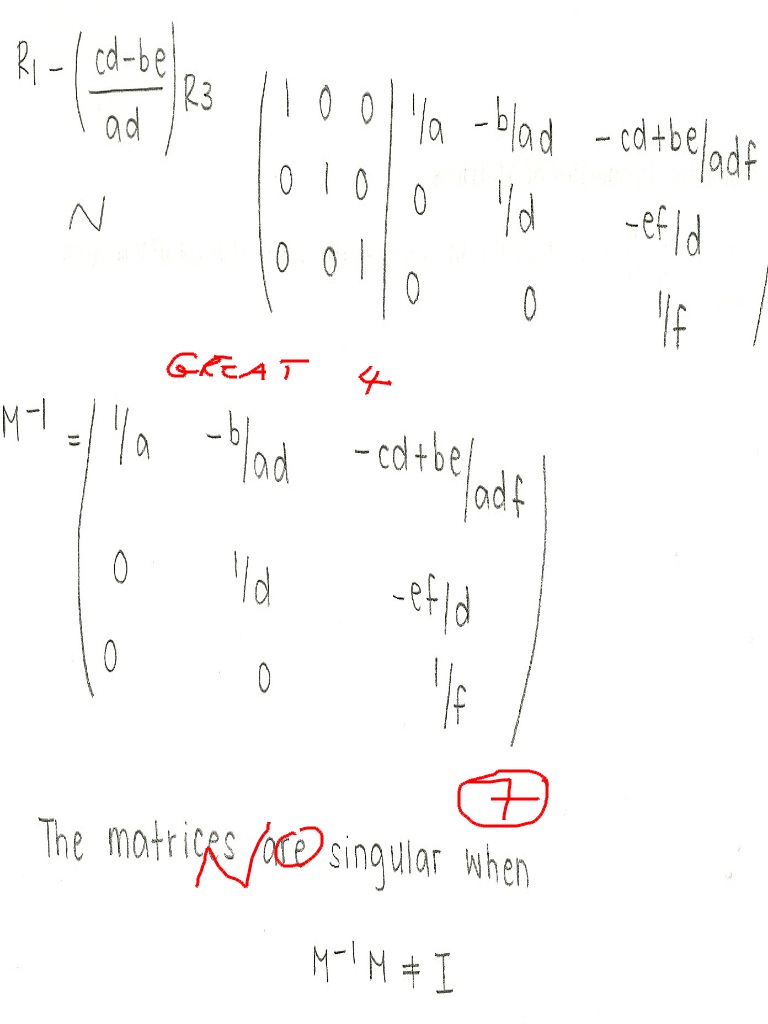 R1 - (cd-be/ad) R3
~
( 1 0 0 | 1/a -b/ad -cd+be/adf
0 1 0 | 0 1/d -ef/d
0 0 1 | 0 0 1/f )
GREAT 4
M^-1 = ( 1/a -b/ad -cd+be/adf
0 1/d -ef/d
0 0 1/f )
7
The matrices are singular when
NO
M^-1 M ≠ I